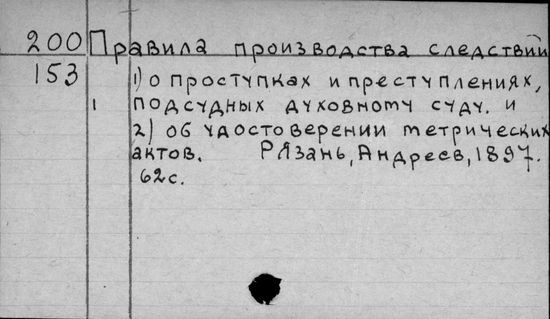 200 Правила производства следствий
153 1) о проступках и преступлениях,
1 подсудных духовному суду. и
2) об удостоверении метрических
актов. Рязань, Андреев, 1897.
62с.